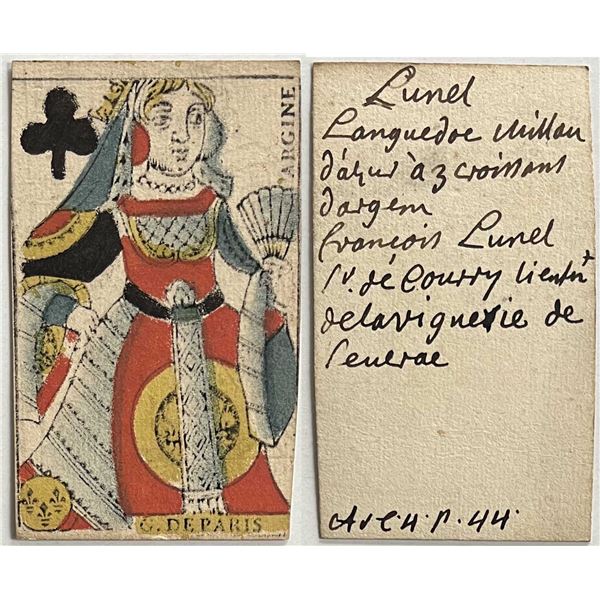 ARGINE
G. DE PARIS
Lunel
Languedoc Millau
d'azur à 3 croissant
d'argem
françois Lunel
Sr. dé Courry lientnt
de la viguerie de
Seuerac
Av C 4. P. 44.